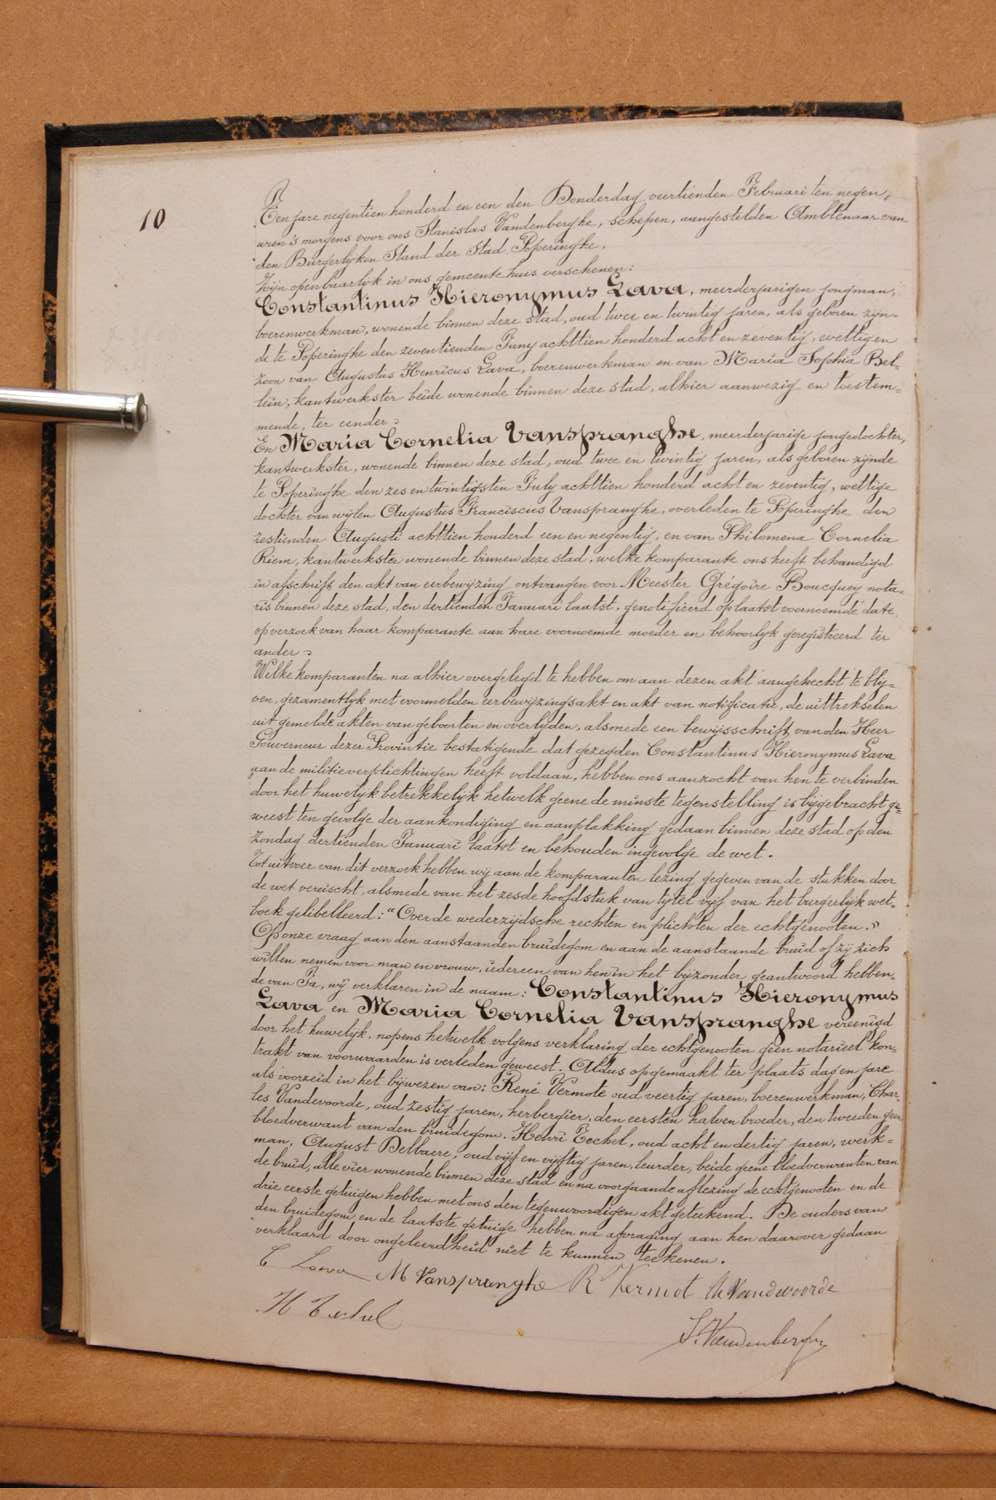 10
Ten jare negentien honderd en een den Donderdag veertienden Februari ten negen
uren 's morgens voor ons Stanislas Vandenberghe, schepen, aangestelden Ambtenaar van
den Burgerlyken Stand der Stad Poperinghe.
Zyn openbaarlyk in ons gemeente huis verschenen:
Constantinus Hieronymus Lava, meerderjarigen jongman,
boerenwerkman, wonende binnen deze stad, oud twee en twintig jaren, als geboren zijn-
de te Poperinghe den zeventienden Juny achttien honderd acht en zeventig, wettigen
zoon van Augustus Henricus Lava, boerenwerkman en van Maria Sophia Bel-
lein, kantwerkster beide wonende binnen deze stad, alhier aanwezig en toestem-
mende, ter eender:
En Maria Cornelia Vanspranghe, meerderjarige jongedochter,
kantwerkster, wonende binnen deze stad, oud twee en twintig jaren, als geboren zijnde
te Poperinghe den zes en twintigsten July achttien honderd acht en zeventig, wettige
dochter van wijlen Augustus Franciscus Vanspranghe, overleden te Poperinghe den
zestienden Augusti achttien honderd een en negentig, en van Philomena Cornelia
Riem, kantwerkster wonende binnen deze stad, welke komparante ons heeft behandigd
in afschrift den akt van eerbewyzing ontvangen voor Meester Gregoire Boucquey nota-
ris binnen deze stad, den dertienden Januari laatst, genotifieerd op laatst voornoemde date
op verzoek van haar komparante aan hare voornoemde moeder en behoorlyk geregistreerd ter
ander:
Welke komparanten na alhier overgelegd te hebben om aan dezen akt aangehecht te bly-
ven, gezamentlyk met voormelden eerbewijzingsakt en akt van notificatie, de uittrekselen
uit gemelde akten van geboorten en overlyden, alsmede een bewijsschrift van den Heer
Gouverneur dezer Provintie bestatigende dat gezegden Constantinus Hieronymus Lava
aan de militieverplichtingen heeft voldaan, hebben ons aanzocht van hen te verbinden
door het huwelyk betrekkelyk hetwelk geene de minste tegenstelling is bijgebracht ge-
weest ten gevolge der aankondiging en aanplakking gedaan binnen deze stad op den
Zondag dertienden Januari laatst en behouden ingevolge de wet.
Tot uitvoer van dit verzoek hebben wij aan de komparanten lezing gegeven van de stukken door
de wet vereischt, alsmede van het zesde hoofdstuk van tytel vyf van het burgerlyk wet-
boek getibelleerd: "Over de wederzijdsche rechten en plichten der echtgenooten."
Op onze vraag aan den aanstaanden bruidegom en aan de aanstaande bruid of zij zich
willen nemen voor man en vrouw, iedereen van hen in het byzonder geantwoord hebben-
de van Ja, wij verklaren in de naam: Constantinus Hieronymus
Lava en Maria Cornelia Vanspranghe vereenigd
door het huwelyk, nopens hetwelk volgens verklaring der echtgenooten geen notarieel kon-
trakt van voorwaarden is verleden geweest. Aldus opgemaakt ter plaats dag en jare
als voorzeid in het bijwezen van: René Vermote oud veertig jaren, boerenwerkman, Char-
les Vandevoorde, oud zestig jaren, herbergier, den eersten halven broeder, den tweeden geen
bloedverwant van den bruidegom. Henri Techel, oud acht en dertig jaren, werk-
man, August Delbaere, oud vijf en vijftig jaren, leurder, beide geene bloedverwanten van
de bruid, alle vier wonende binnen deze stad en na voorgaande aflezing de echtgenooten en de
drie eerste getuigen hebben met ons den tegenwoordigen akt geteekend. De ouders van
den bruidegom en de laatste getuige hebben na afvraging aan hen daarover gedaan
verklaard door ongeleerdheid niet te kunnen teekenen.
C Lava M Vanspranghe R Vermot Ch Vandevoorde
H Techel
S. Vandenberghe